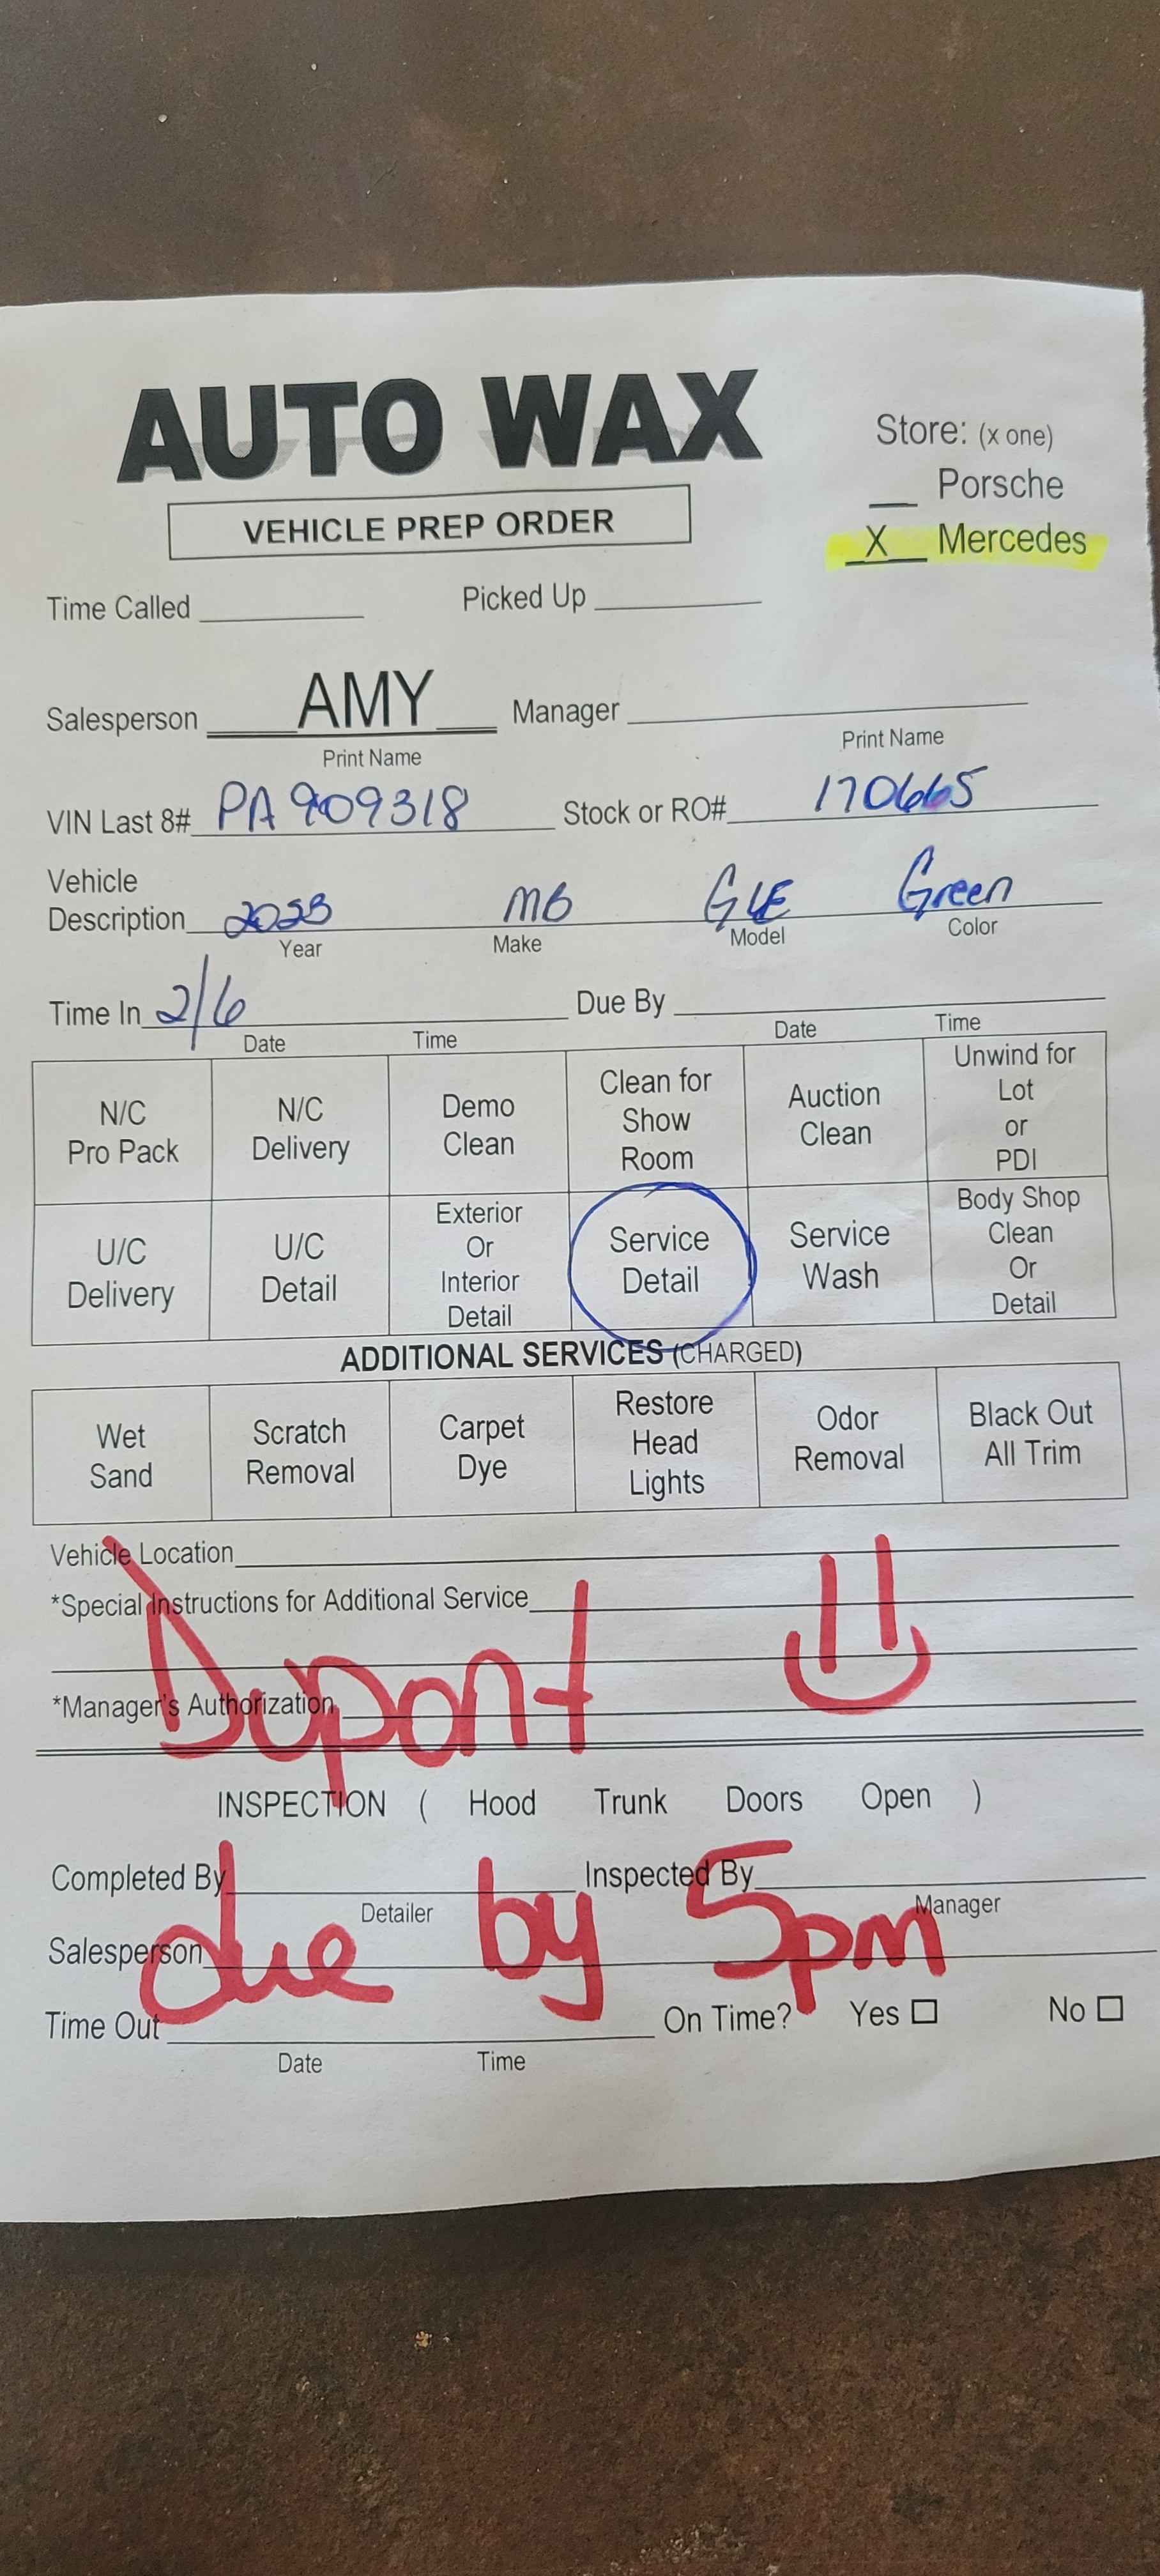 AUTO WAX
VEHICLE PREP ORDER
Store: (x one)
__ Porsche
_X_ Mercedes
Time Called ________ Picked Up ________
Salesperson AMY Manager ________
Print Name Print Name
VIN Last 8# PA909318 Stock or RO# 170665
Vehicle
Description 2023 MB GLE Green
Year Make Model Color
Time In 2/6 Due By ________
Date Time Date Time
N/C Pro Pack N/C Delivery Demo Clean Clean for Show Room Auction Clean Unwind for Lot or PDI
U/C Delivery U/C Detail Exterior Or Interior Detail Service Detail Service Wash Body Shop Clean Or Detail
ADDITIONAL SERVICES (CHARGED)
Wet Sand Scratch Removal Carpet Dye Restore Head Lights Odor Removal Black Out All Trim
Vehicle Location
*Special Instructions for Additional Service
Dupont
*Manager's Authorization
INSPECTION ( Hood Trunk Doors Open )
Completed By ________ Inspected By ________
Detailer Manager
due by 5pm
Salesperson
Time Out ________ On Time? Yes ☐ No ☐
Date Time